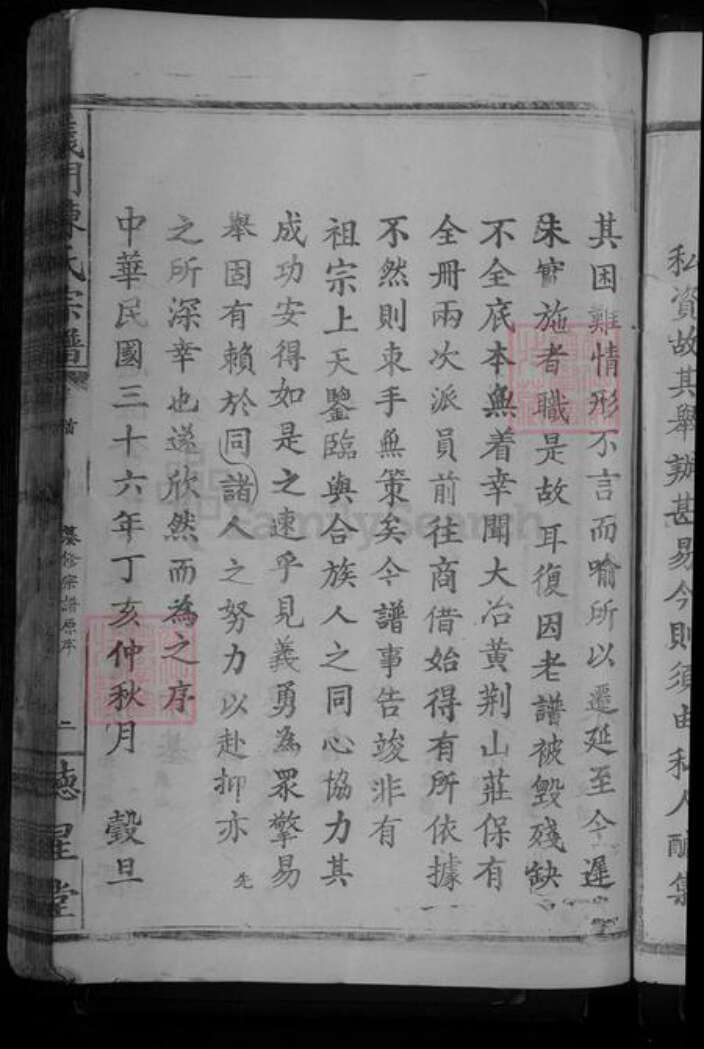 私資故其舉辦甚易今則須由私人醵集
其困難情形不言而喻所以遷延至今遲
未實施者職是故耳復因老譜被毀殘缺
不全底本無着幸聞大冶黃荆山莊保有
全冊兩次派員前往商借始得有所依據
不然則束手無策矣今譜事告竣非有
祖宗上天鑒臨與合族人之同心協力其
成功安得如是之速乎見義勇為眾擎易
舉固有賴於同諸人之努力以赴抑亦
先
之所深幸也遂欣然而為之序
中華民國三十六年丁亥仲秋月 穀旦
義門陳氏宗譜
纂修宗譜原序
二
德星堂
FamilySearch